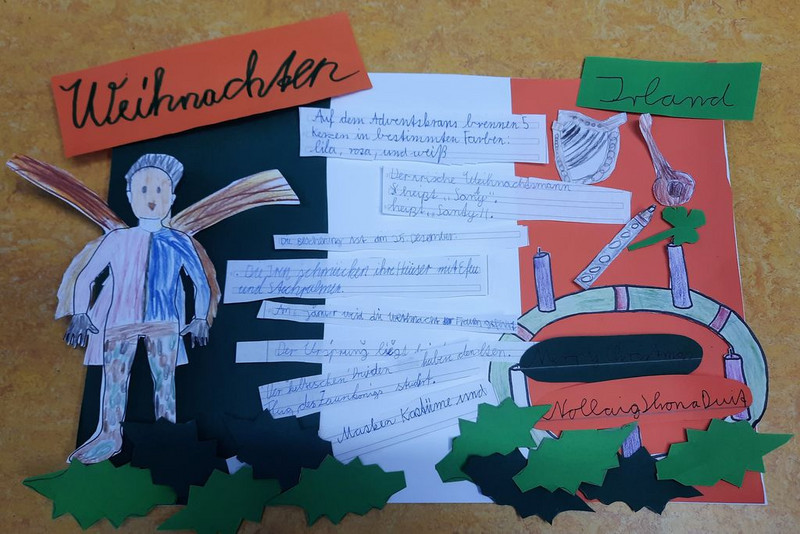 Weihnachten
Irland
Auf dem Adventskrans brennen 5
Kerzen in bestimmten Farben:
lila, rosa, und weiß
Der irische Weihnachtsmann
heißt "Santy".
heißt "Santy".
Die Bescherung ist am 25. Dezember.
Die Iren schmücken ihre Häuser mit Efeu
und Stechpalmen.
Januar wird die Weihnacht Frauen gefeiert
Der Ursprung liegt
Druiden haben den
Flug des Zaunkönigs studiert.
Masken Kostüme und
Nollaig Shona Duit